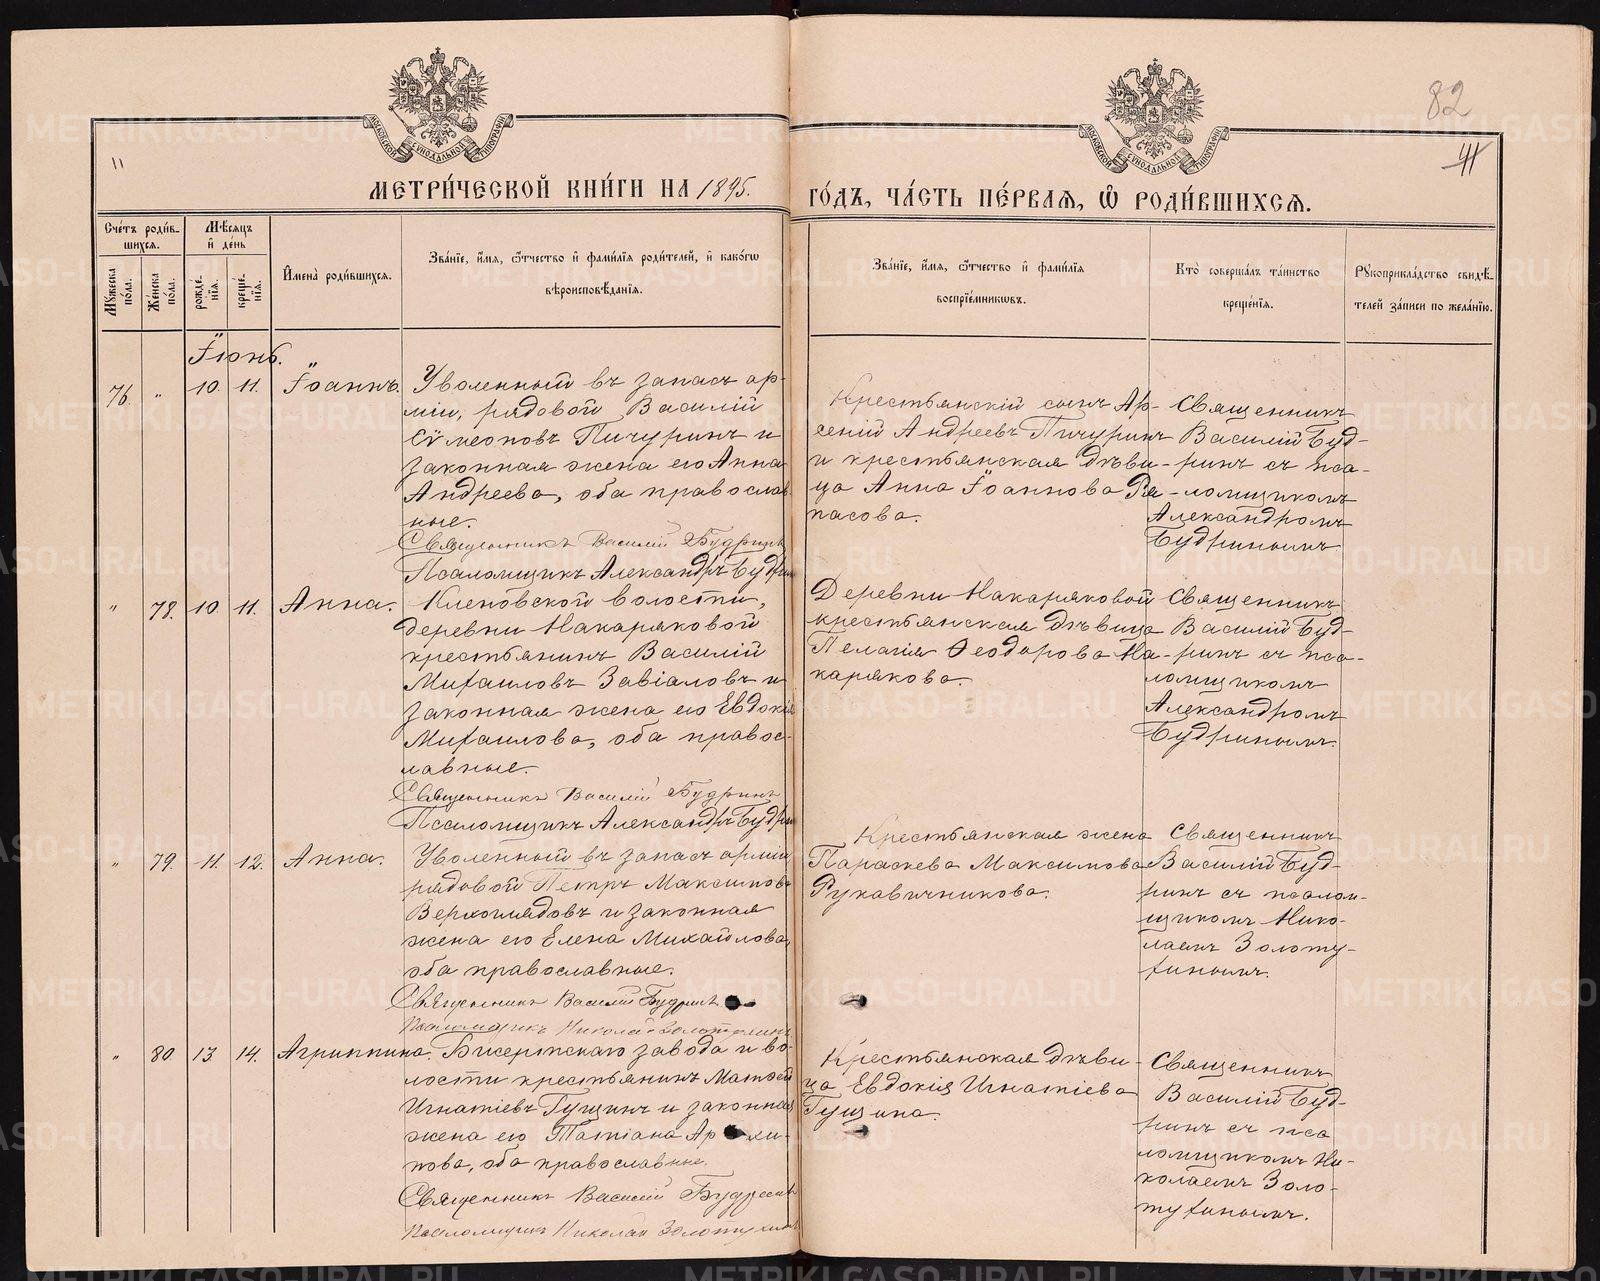 82
41
"
МОСКОВСКОЙ СѴНОДАЛЬНОЙ ТИПОГРАФІИ
МОСКОВСКОЙ СѴНОДАЛЬНОЙ ТИПОГРАФІИ
МЕТРИ́ЧЕСКОЙ КНИ́ГИ НА 1895.
ГО́ДЪ, ЧА́СТЬ ПЕ́РВАѦ, Ѡ҆ РОДИ́ВШИХСѦ.
Сче́тъ роди́в-
шихсѧ.
Мꙋ́жеска
по́ла.
Же́нска
по́ла.
Мѣ́сѧцъ
и҆ де́нь
рожде́-
нїѧ.
креще́-
нїѧ.
И҆мена̀ роди́вшихсѧ.
Зва́нїе, и҆́мѧ, ѻ҆́тчество и҆ фами́лїѧ роди́телей, и҆ како́гѡ
вѣроисповѣ́данїѧ.
Зва́нїе, и҆́мѧ, ѻ҆́тчество и҆ фами́лїѧ
воспрїе́мникѡвъ.
Кто̀ соверша́лъ та́инство
креще́нїѧ.
Рꙋкоприкла́дство свидѣ́-
телей за́писи по жела́нїю.
Іюнь.
76. " 10. 11. Іоаннъ.
Уволенный въ запасъ ар-
міи, рядовой Василій
Сѵмеоновъ Пичуринъ и
законная жена его Анна
Андреева, оба православ
ные.
Священникъ Василій Будринъ
Псаломщикъ Александръ Будрин
Крестьянскій сынъ Ар-
сеній Андреевъ Пичуринъ
и крестьянская дѣви-
ца Анна Іоаннова Ре-
пасова.
Священникъ
Василій Буд-
ринъ съ пса-
ломщикомъ
Александромъ
Будринымъ
" 78. 10. 11. Анна.
Кленовской волости,
деревни Накаряковой
крестьянинъ Василій
Михаиловъ Завіаловъ и
законная жена его Евдокія
Михаилова, оба правос-
лавные.
Священникъ Василій Будринъ
Псаломщикъ Александръ Будрин
Деревни Накаряковой
крестьянская дѣвица
Пелагія Ѳеодорова На-
карякова.
Священникъ
Василій Буд-
ринъ съ пса-
ломщикомъ
Александромъ
Будринымъ.
" 79. 11. 12. Анна.
Уволенный въ запасъ арміи
рядовой Петръ Максимовъ
Верхоглядовъ и законная
жена его Елена Михайлова,
оба православные.
Священникъ Василій Будринъ
Псаломщикъ Николай Золотухинъ
Крестьянская жена
Параскева Максимова
Рукавичникова.
Священникъ
Василій Буд-
ринъ съ псалом-
щикомъ Нико-
лаемъ Золоту-
хинымъ.
" 80. 13 14. Агриппина.
Бисертскаго завода и во-
лости крестьянинъ Матѳей
Игнатіевъ Гущинъ и законная
жена его Татіана Архи-
пова, оба православные.
Священникъ Василій Будринъ
Псаломщикъ Николай Золотухинъ
Крестьянская дѣви-
ца Евдокія Игнатіева
Гущина.
Священникъ
Василій Буд-
ринъ съ пса
ломщикомъ Ни-
колаемъ Золо-
тухинымъ.
METRIKI.GASO-URAL.RU